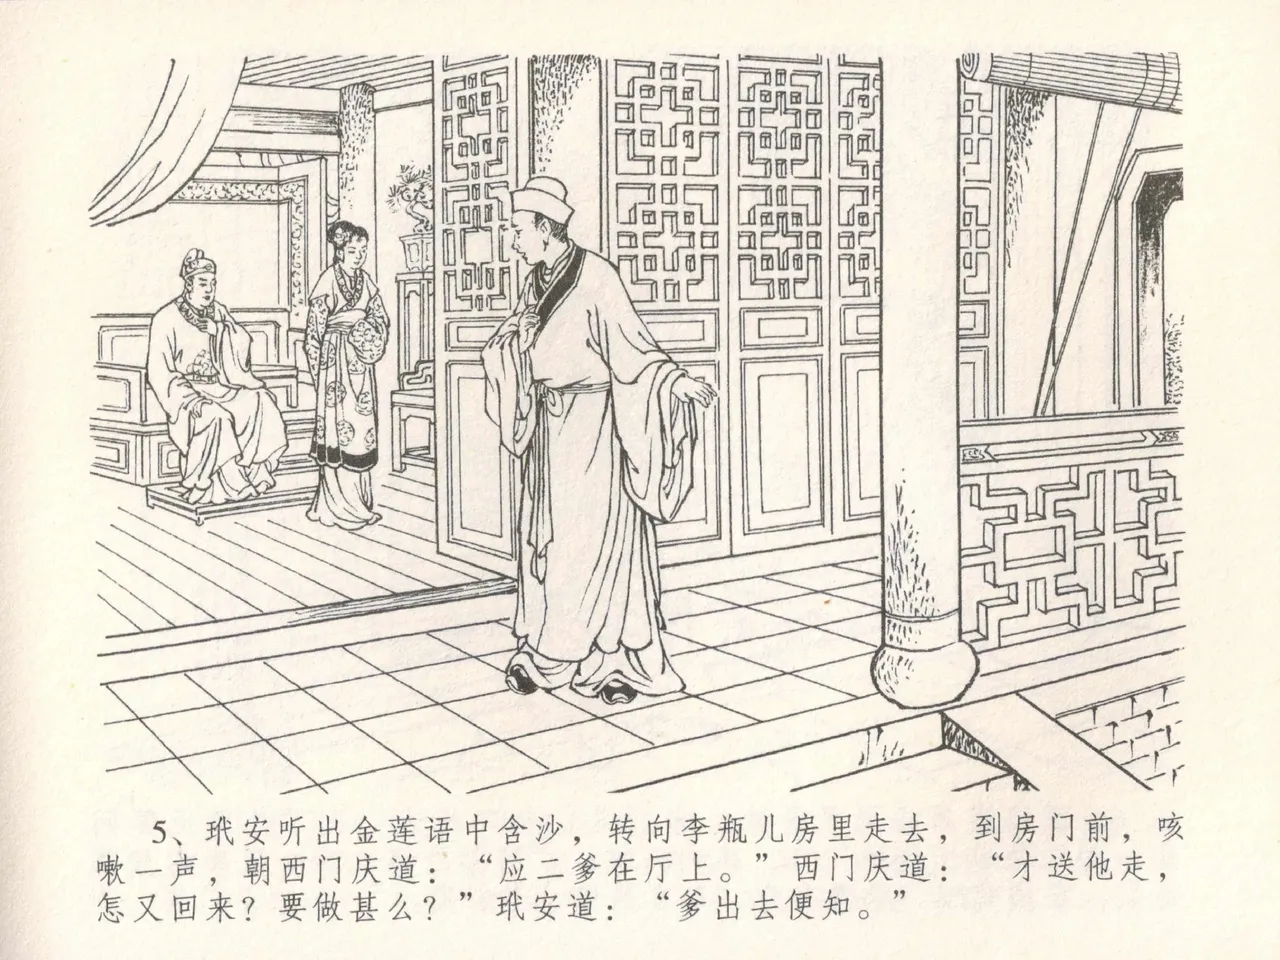 5、玳安听出金莲语中含沙，转向李瓶儿房里走去，到房门前，咳
嗽一声，朝西门庆道：“应二爹在厅上。”西门庆道：“才送他走，
怎又回来？要做甚么？”玳安道：“爹出去便知。”